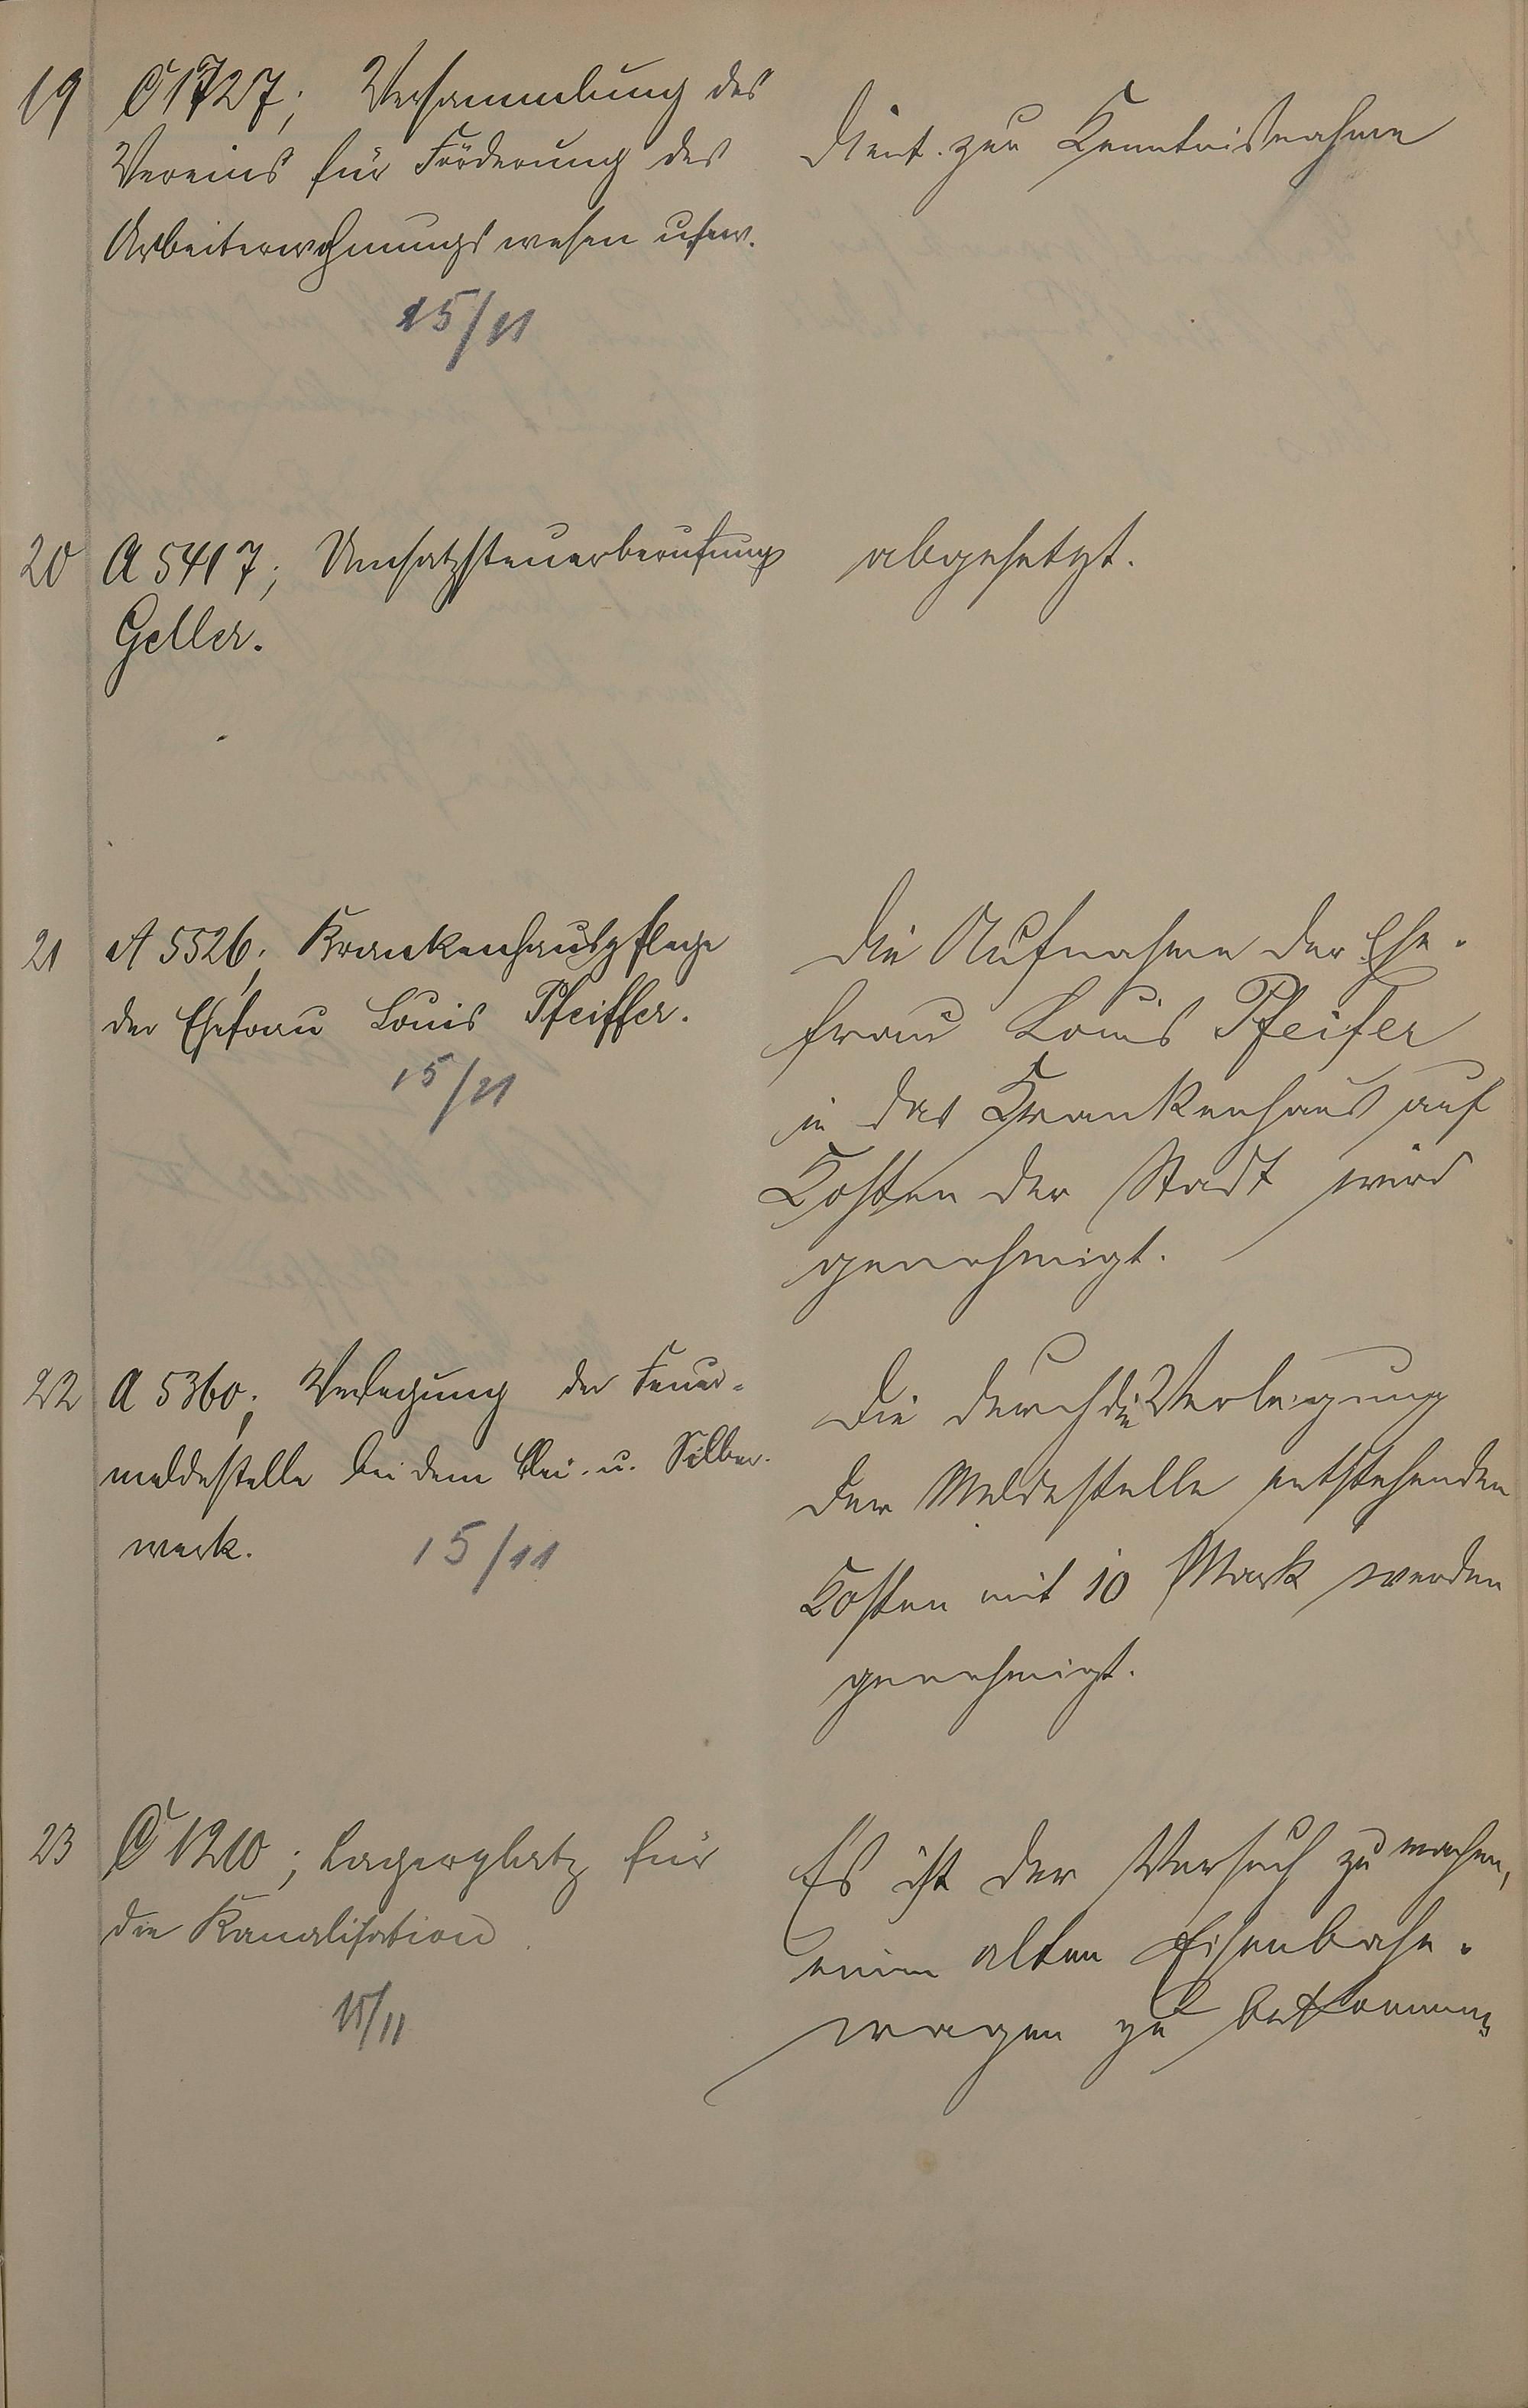 19 C 1727; Versammlung des
Vereins für Förderung des
Arbeiterwohnungswesen usw.
15/11
Dient zur Kenntnisnahme
20 A 5417; Umsatzsteuerberufung
Geller.
abgesetzt.
21 A 5526; Krankenhauspflege
der Ehefrau Louis Pfeiffer.
15/11
Die Aufnahme der Ehe-
frau Louis Pfeifer
in das Krankenhaus auf
Kosten der Stadt wird
genehmigt.
22 A 5360; Verlegung der Feuer-
meldestelle bei dem Blei- u. Silber-
werk.
15/11
Die durch die Verlegung
der Meldestelle entstehenden
Kosten mit 10 Mark werden
genehmigt.
23 C 1210; Lagerplatz für
die Kanalisation
15/11
Es ist der Versuch zu machen,
einen alten Eisenbahn-
wagen zu bekommen.